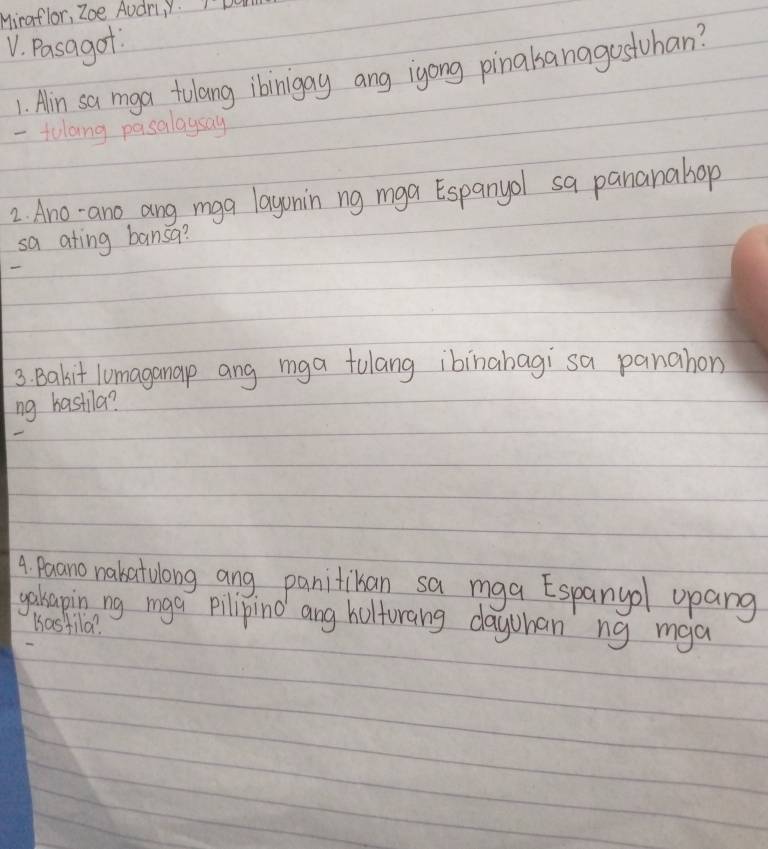 Miraflor, Zoe Audri, Y.
V. Pasagot:
1. Alin sa mga tulang ibinigay ang iyong pinakanagustuhan?
- tulang pasalaysay
2. Ano-ano ang mga layunin ng mga Espanyol sa pananakop
sa ating bansa?
-
3. Bakit lumaganap ang mga tulang ibinahagi sa panahon
ng kastila?
-
4. Paano nakatulong ang panitikan sa mga Espanyol upang
yakapin ng mga pilipino ang kulturang dayuhan ng mga
kastila?
-